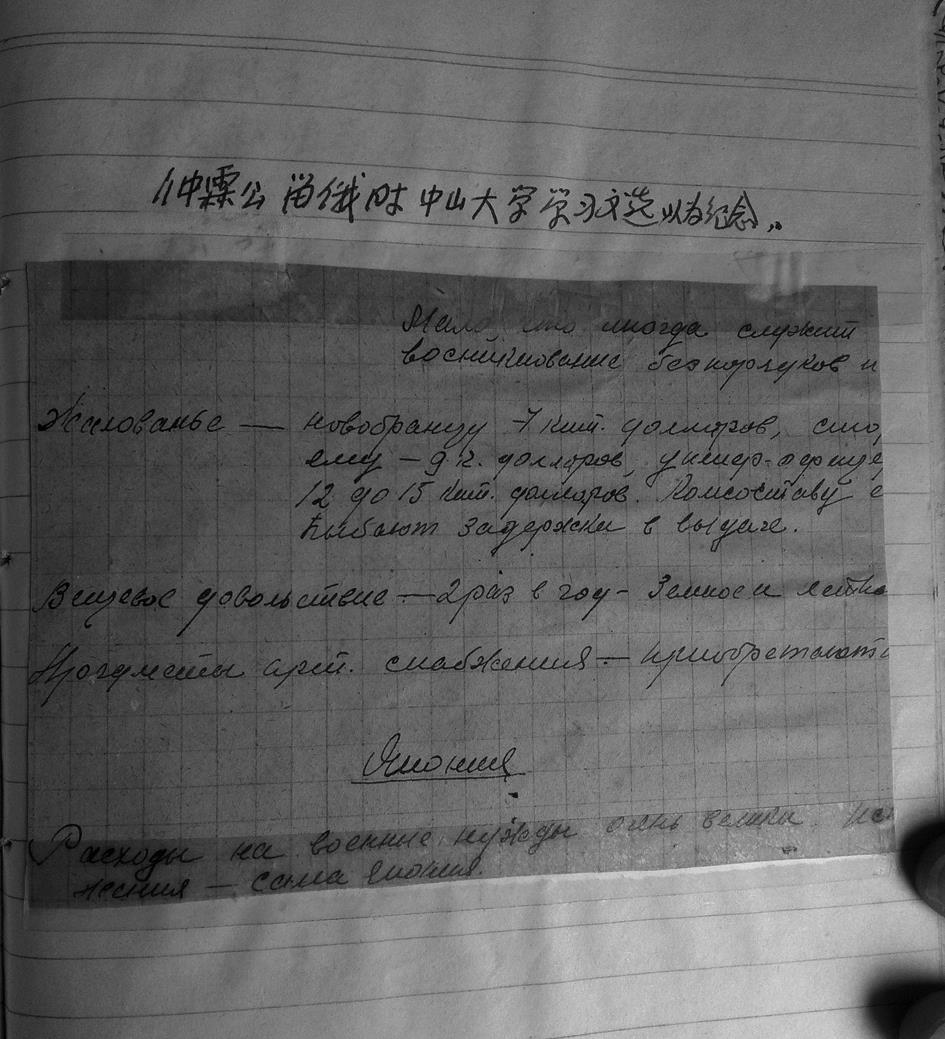 仲霖公留俄时中山大学学习文选以为纪念..
Мало иногда служит
возникновение беспорядков и
Жалованье — новобранцу 7 кит. долларов,
ему — 9 к. долларов, унтер-офице
12 до 15 кит. долларов. Комсоставу
бывают задержки в выдаче.
Вещевое довольствие — 2 раз в год -
арт. снабжения — приобретают
Япония
Расходы на военные нужды очень велики.
жения — сама Япония.